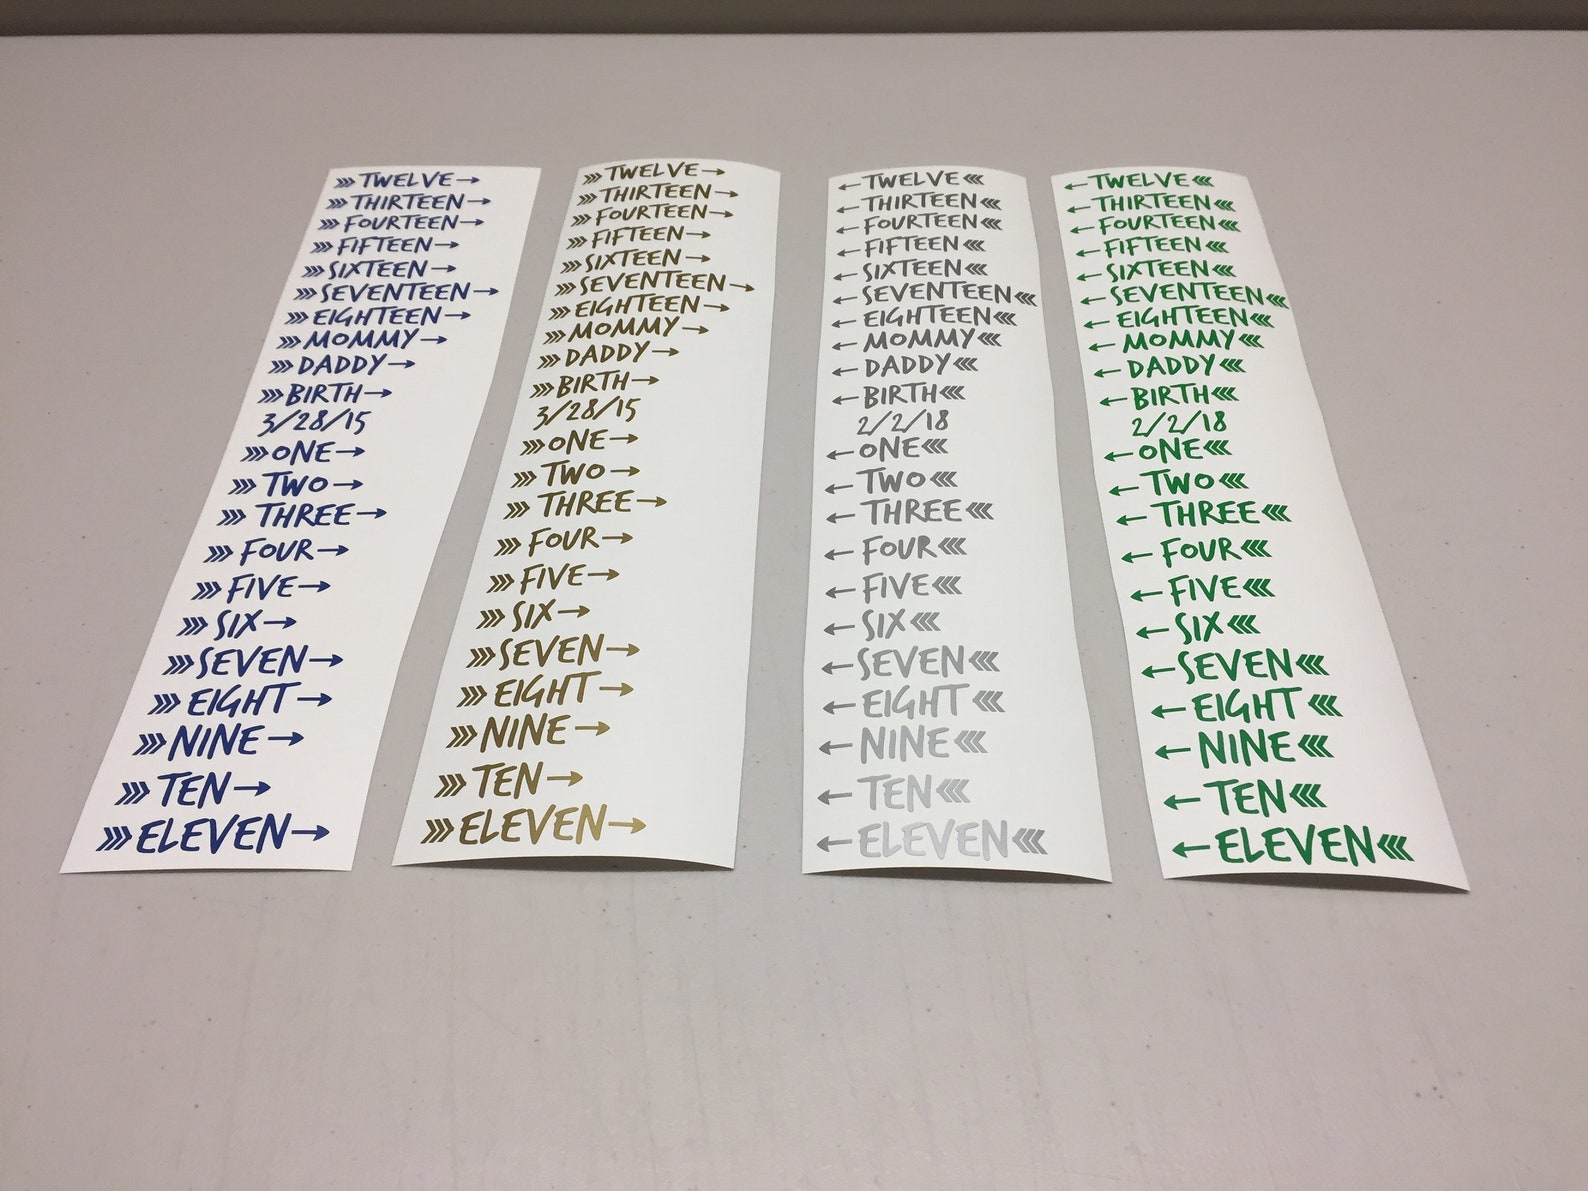 TWELVE
THIRTEEN
FOURTEEN
FIFTEEN
SIXTEEN
SEVENTEEN
EIGHTEEN
MOMMY
DADDY
BIRTH
3/28/15
ONE
TWO
THREE
FOUR
FIVE
SIX
SEVEN
EIGHT
NINE
TEN
ELEVEN
TWELVE
THIRTEEN
FOURTEEN
FIFTEEN
SIXTEEN
SEVENTEEN
EIGHTEEN
MOMMY
DADDY
BIRTH
3/28/15
ONE
TWO
THREE
FOUR
FIVE
SIX
SEVEN
EIGHT
NINE
TEN
ELEVEN
TWELVE
THIRTEEN
FOURTEEN
FIFTEEN
SIXTEEN
SEVENTEEN
EIGHTEEN
MOMMY
DADDY
BIRTH
2/2/18
ONE
TWO
THREE
FOUR
FIVE
SIX
SEVEN
EIGHT
NINE
TEN
ELEVEN
TWELVE
THIRTEEN
FOURTEEN
FIFTEEN
SIXTEEN
SEVENTEEN
EIGHTEEN
MOMMY
DADDY
BIRTH
2/2/18
ONE
TWO
THREE
FOUR
FIVE
SIX
SEVEN
EIGHT
NINE
TEN
ELEVEN